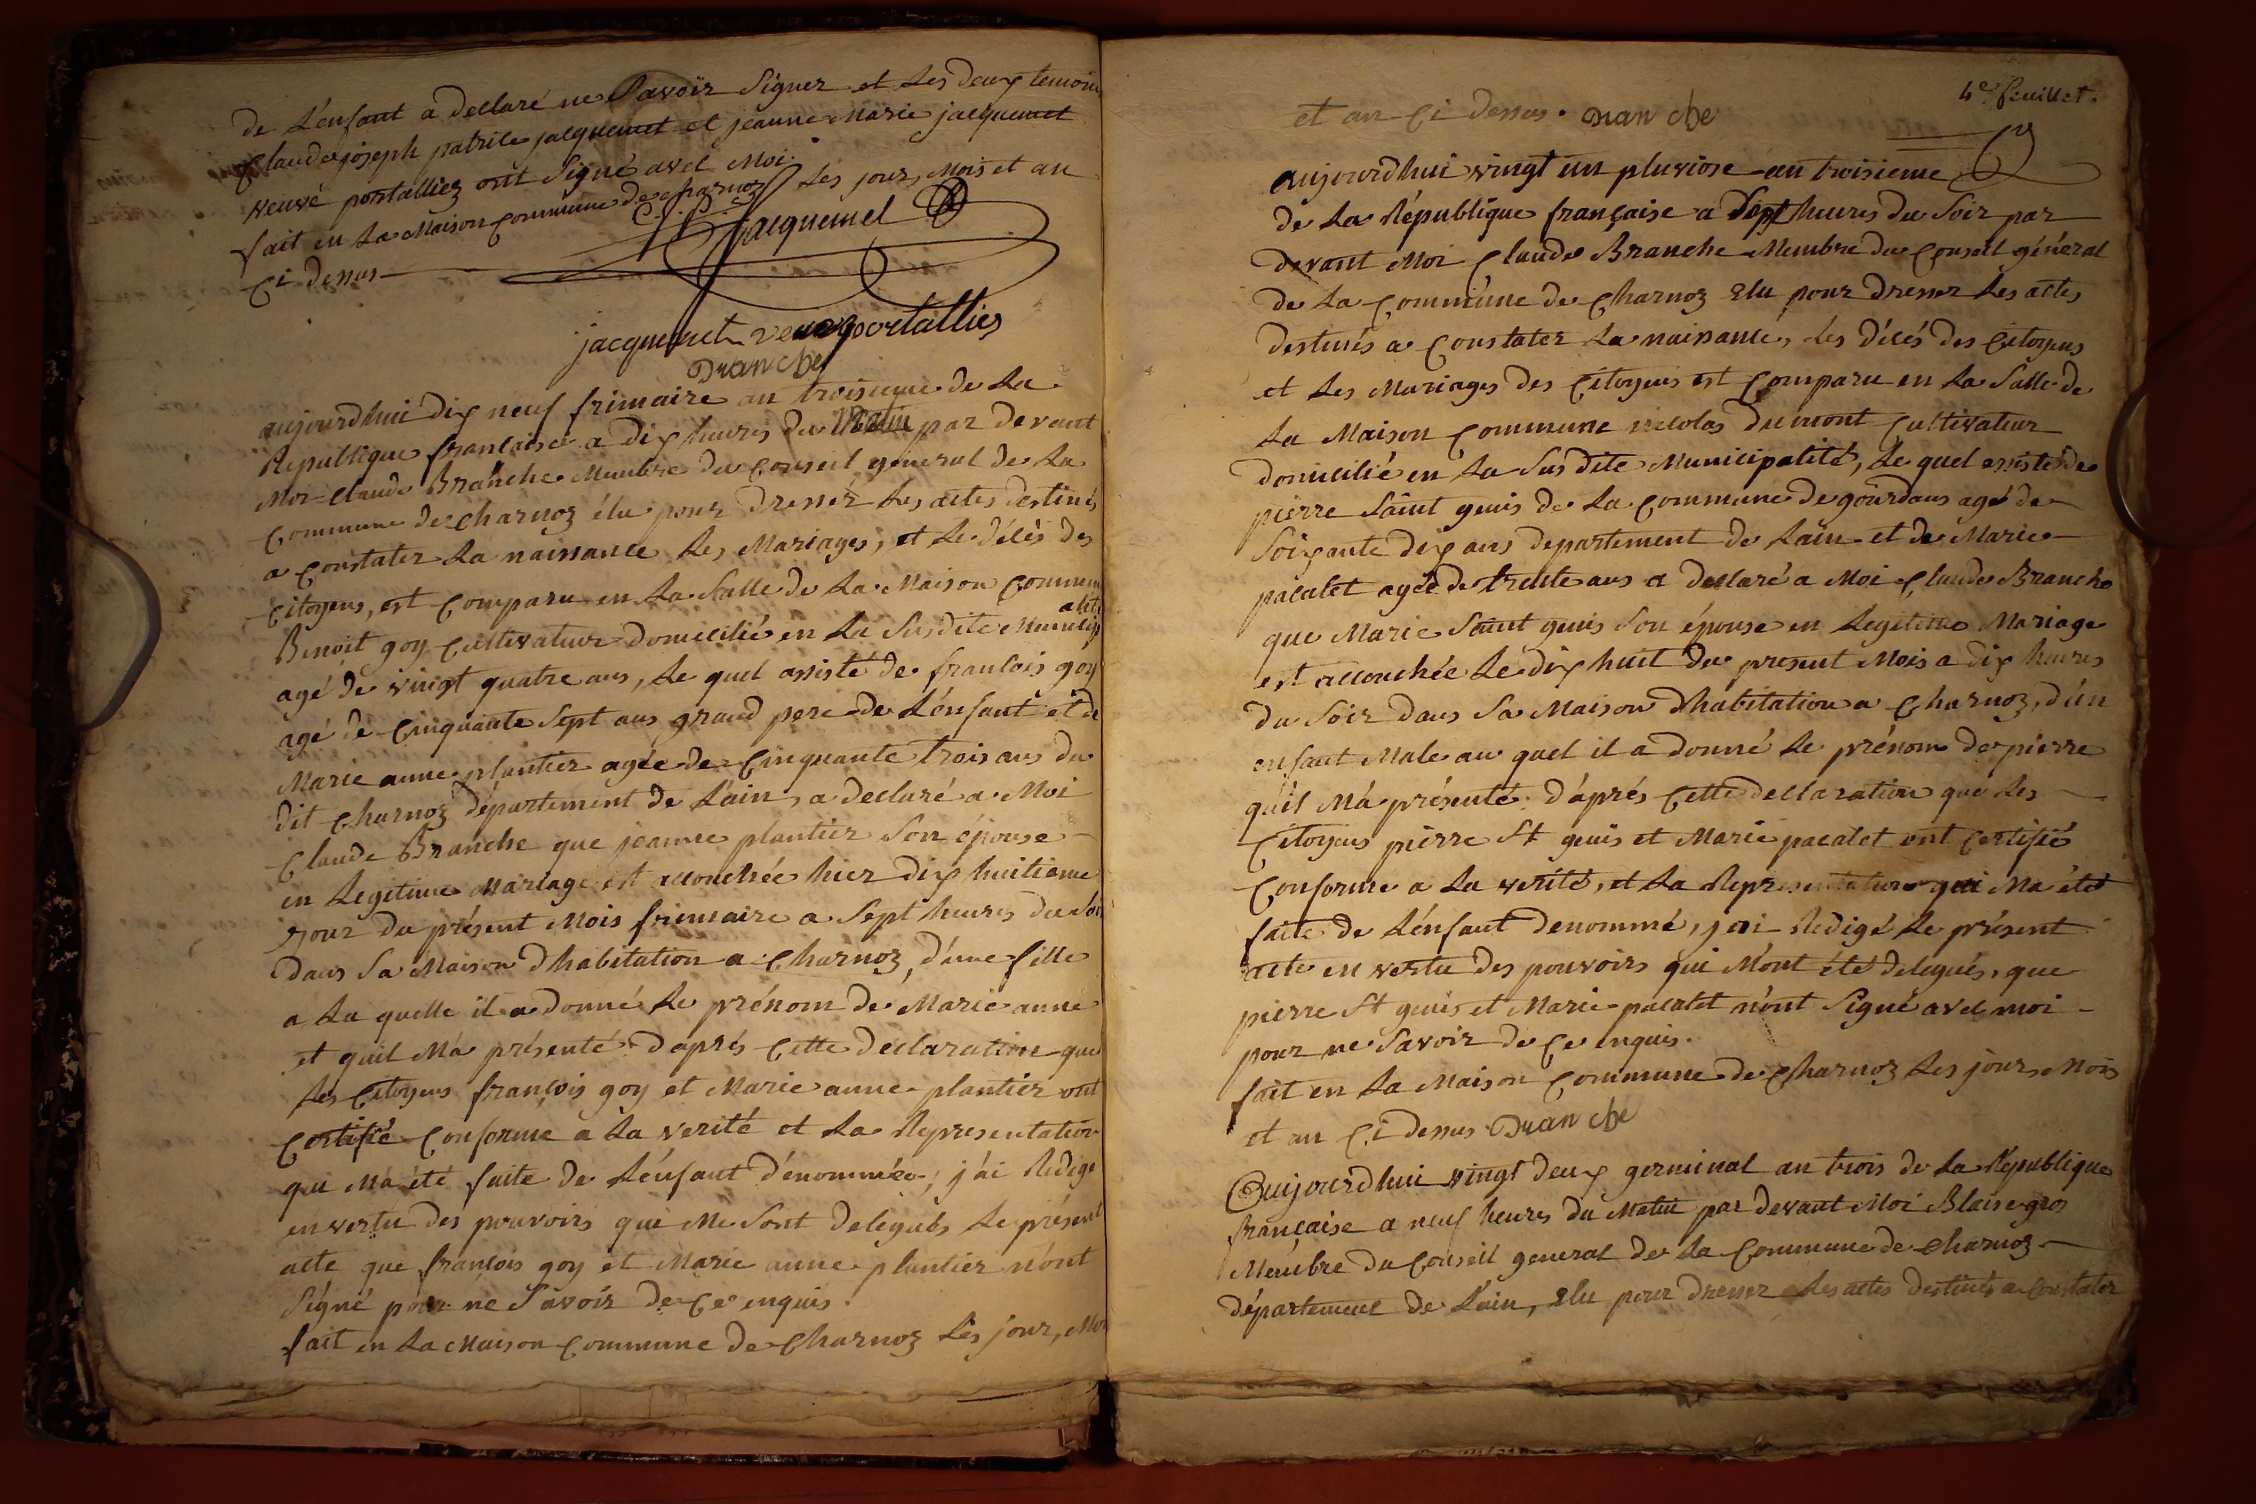 de L'énfant a declaré ne Savoir Signer et Les deux temoins
Claude joseph patrice jacquemet et jeanne Marie jacquemet
veuve portalliez ont Signé avec Moi.
fait en La Maison Commune de charnoz Les jour, Mois et an
Ci dessus
C. J. P. Jacquemet
jacquemet veuve portallies
Branche
aujourdhui dix neuf frimaire an troisieme de La
Republique francaise a dix heures du Matin par devant
Moi Claude Branche Membre du Conseil general de La
Commune de Charnoz élu pour dresser Les actes destinés
a Constater La naissance Les Mariages, et Le décès des
Citoyens, est Comparu en La Salle de La Maison Commune
Benoit goy Cultivateur domicilié en La Susdite Municipalité
agé de vingt quatre ans, Le quel assisté de francois goy
agé de Cinquante Sept ans grand pere de L'énfant et de
Marie anne plantier agée de Cinquante trois ans du
dit Charnoz département de L'ain, a declaré a Moi
Claude Branche que jeanne plantier Son épouse
en Legitime Mariage est accouchée hier dix huitieme
jour du présent Mois frimaire a Sept heures du Soir
dans Sa Maison d'habitation a Charnoz, d'une fille
a La quelle il a donné Le prénom de Marie anne
et quil M'a présenté d'aprés Cette declaration que
Les Citoyens françois goy et Marie anne plantier ont
Certifié Conforme a La verité et La Representation
qui M'a été faite de L'énfant dénommée, j'ai Redigé
en vertu des pouvoirs qui Me Sont delegués Le présent
acte que françois goy et Marie anne plantier n'ont
Signé pour ne Savoir de Ce enquis.
fait en La Maison Commune de Charnoz Les jour, Mois
4e feuillet.
et an Ci dessus. Branche
aujourdhui vingt un pluviose an troisieme
de La République française a Sept heures du Soir par
devant Moi Claude Branche Membre du Conseil général
de La Commune de Charnoz Elu pour dresser Les actes
destinés a Constater La naissance, Les décés des Citoyens
et Les Mariages des Citoyens est Comparu en La Salle de
La Maison Commune nicolas dumont Cultivateur
domicilié en La Susdite Municipalité, Le quel assisté de
pierre Saint genis de La Commune de gourdans agé de
Soixante dix ans departement de L'ain et de Marie
pacalet agée de trente ans a declaré a Moi Claude Branche
que Marie Saint genis Son épouse en Legitime Mariage
est accouchée Le dix huit du present Mois a dix heures
du Soir dans Sa Maison d'habitation a Charnoz, d'un
enfant Male au quel il a donné Le prénom de pierre
qu'il M'a présenté d'aprés Cette declaration que Les
Citoyens pierre St genis et Marie pacalet ont Certifié
Conforme a La verité, et La Representation qui M'a été
faite de L'énfant denommé, j'ai Redigé Le présent
acte en vertu des pouvoirs qui M'ont été delegués, que
pierre St genis et Marie pacalet n'ont Signé avec moi
pour ne Savoir de Ce enquis.
fait en La Maison Commune de Charnoz Les jour, Mois
et an Ci dessus Branche
Aujourdhui vingt deux germinal an trois de La République
française a neuf heures du Matin par devant Moi Blaise gros
Membre du Conseil general de La Commune de charnoz
département de L'ain, Elu pour dresser Les actes destinés a Constater